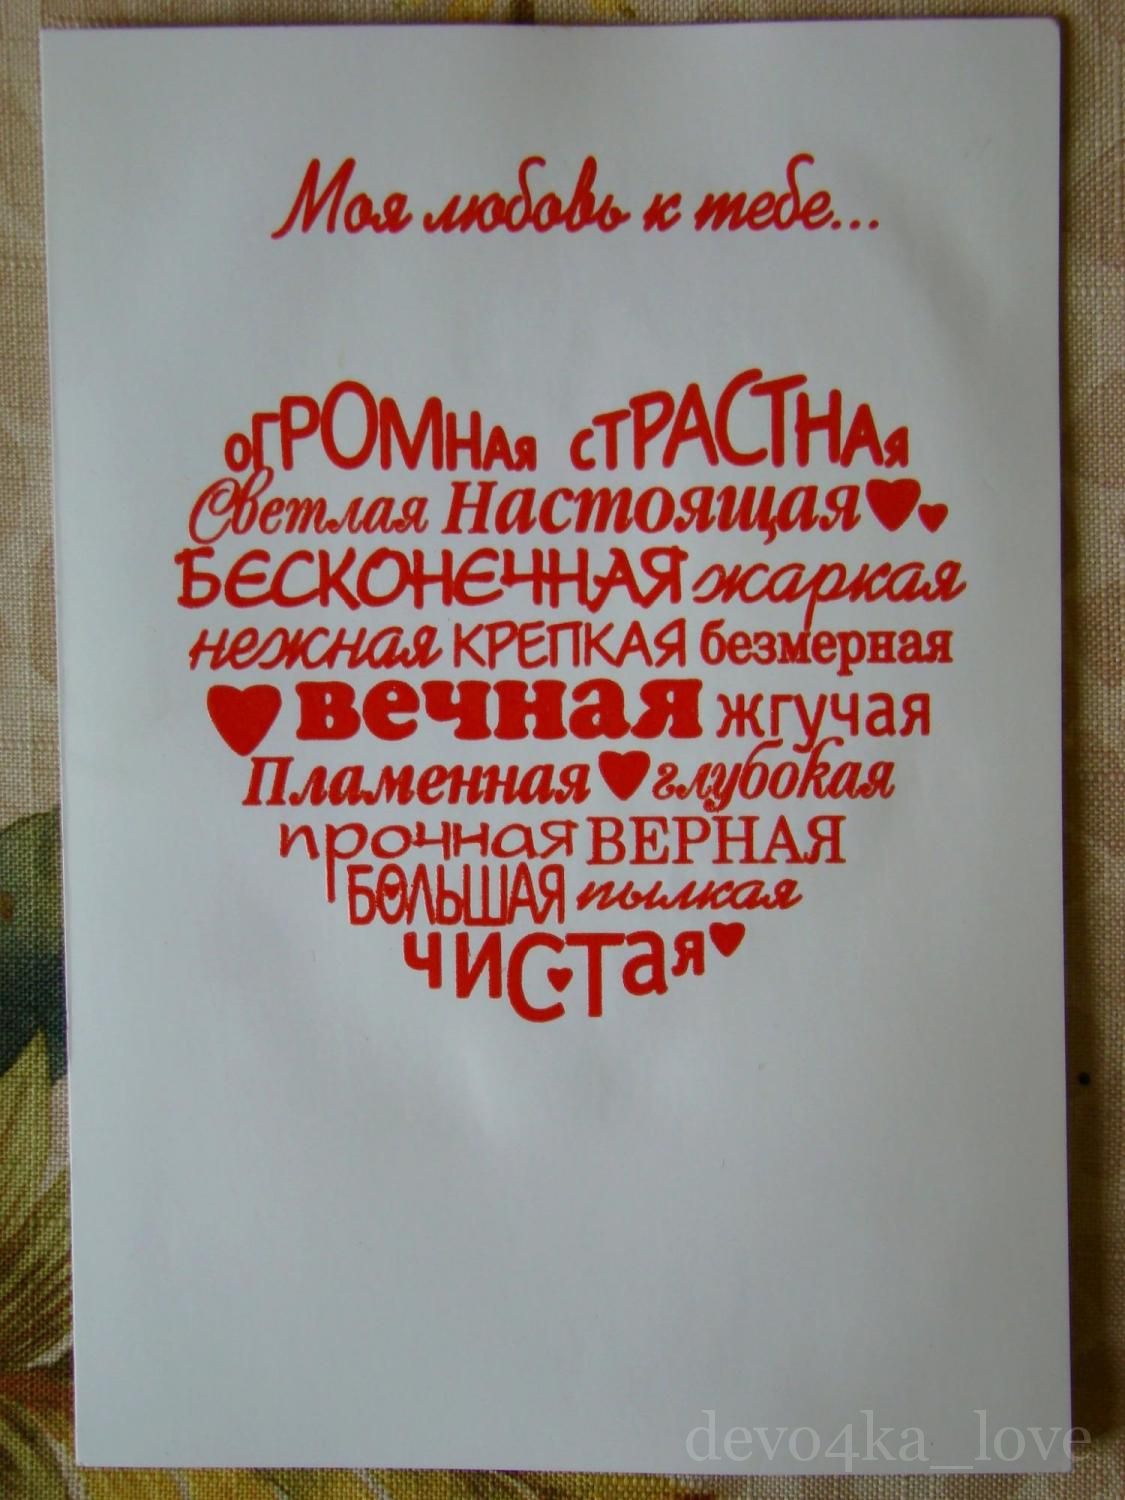 Моя любовь к тебе...
огРОМНая сТРАСТНАя
Светлая Настоящая
БЕСКОНЕЧНАЯ жаркая
нежная КРЕПКАЯ безмерная
вечная жгучая
Пламенная глубокая
прочная ВЕРНАЯ
БОЛЬШАЯ пылкая
чИСТая
devo4ka_love